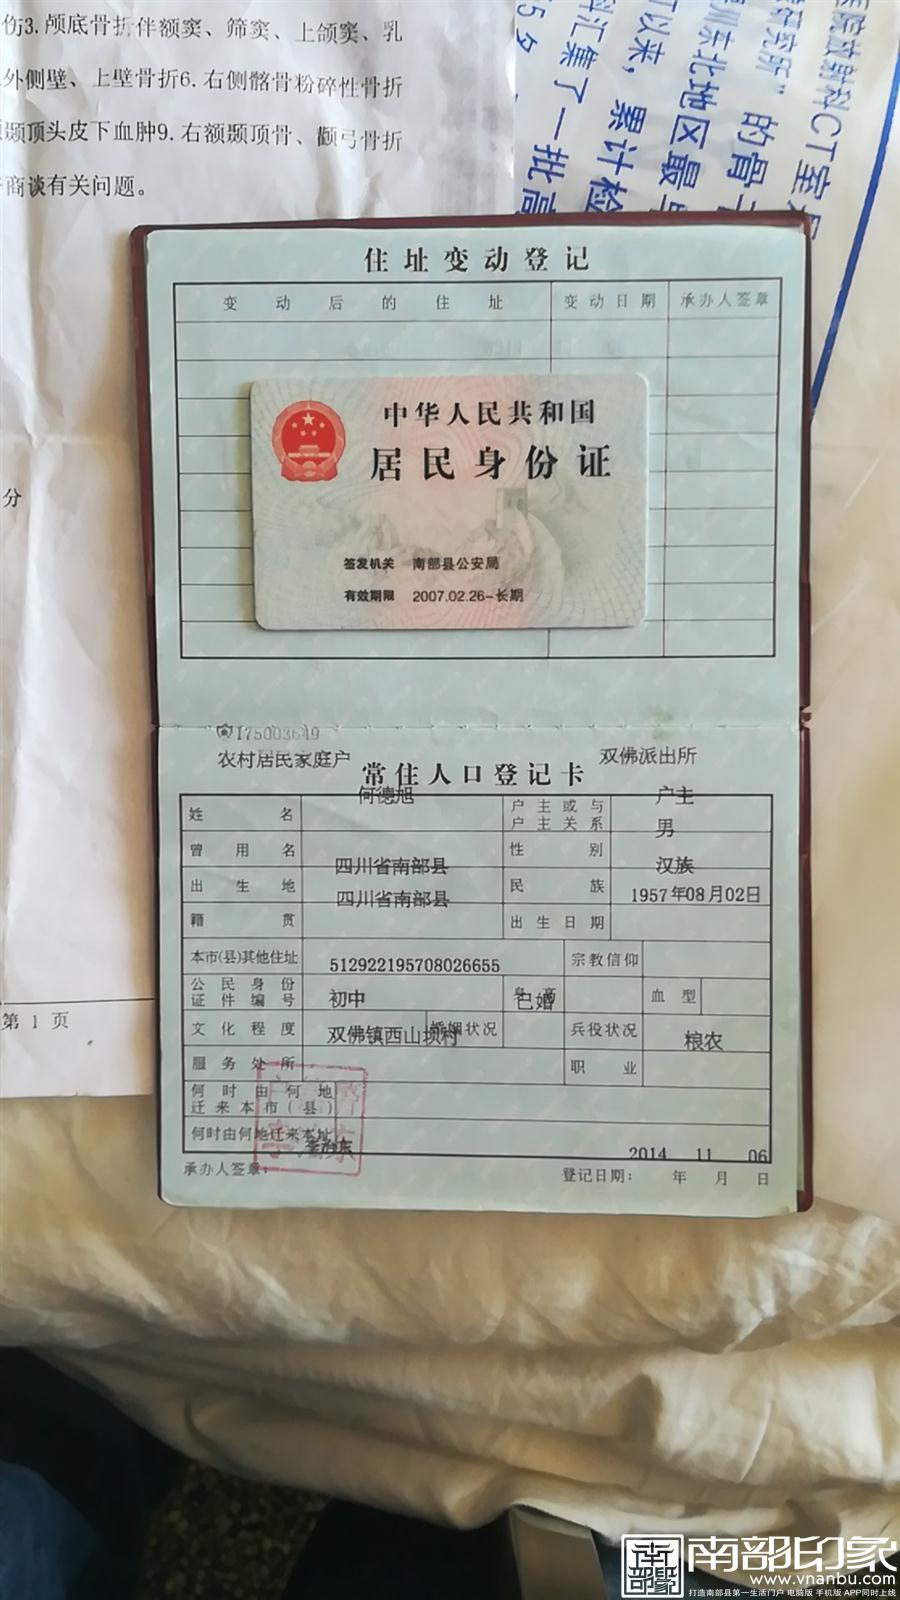 伤3.颅底骨折伴额窦、筛窦、上颌窦、乳
外侧壁、上壁骨折6.右侧髂骨粉碎性骨折
颞顶头皮下血肿9.右额颞顶骨、颧弓骨折
商谈有关问题。
分
第 1 页
医院放射科CT室
研究所”的骨干
川东北地区最早
可以来，累计检
科汇集了一批高
住址变动登记
变动后的住址 变动日期 承办人签章
中华人民共和国
居民身份证
签发机关 南部县公安局
有效期限 2007.02.26-长期
175003649
农村居民家庭户 双佛派出所
常住人口登记卡
姓名 何德旭 户主或与户主关系 户主
曾用名 性别 男
出生地 四川省南部县 民族 汉族
籍贯 四川省南部县 出生日期 1957年08月02日
本市(县)其他住址 宗教信仰
公民身份证件编号 512922195708026655 身高 血型
文化程度 初中 婚姻状况 已婚 兵役状况
服务处所 双佛镇西山坝村 职业 粮农
何时由何地迁来本市(县)
何时由何地迁来本址
承办人签章： 李治东 登记日期： 2014年11月06日
南部印象
www.vnanbu.com
打造南部县第一生活门户 电脑版 手机版 APP同时上线